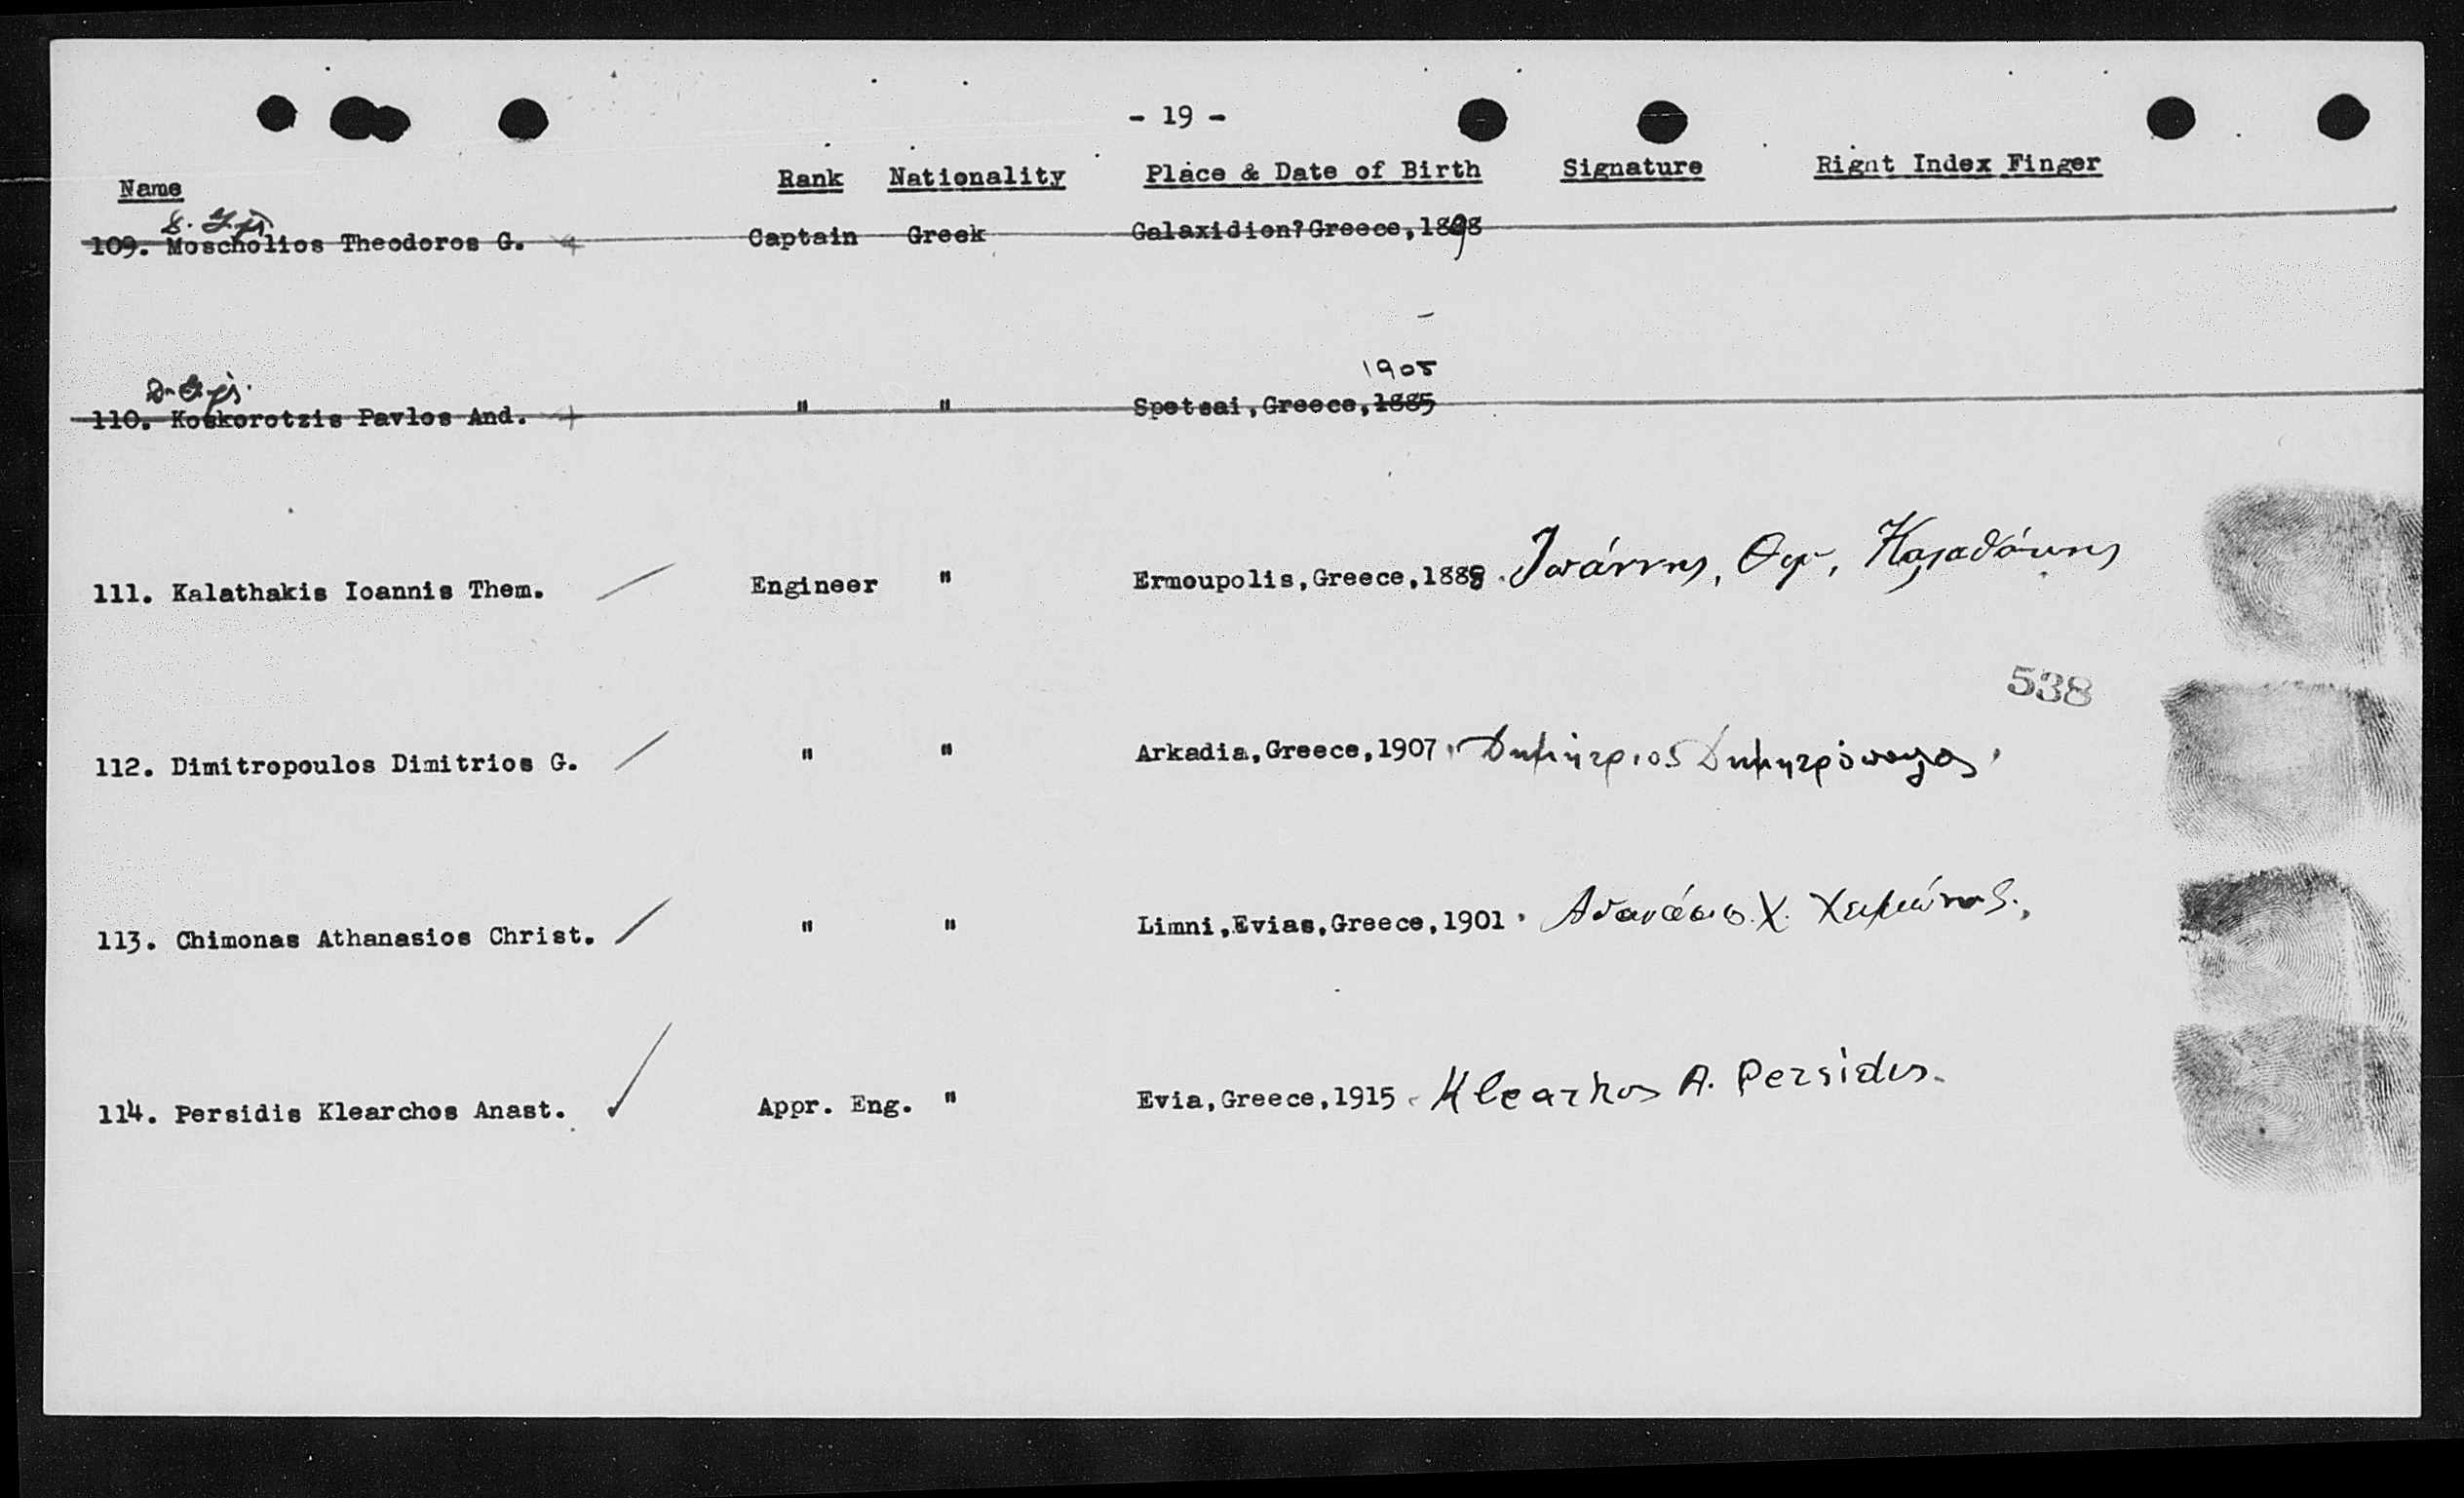 - 19 -
Name Rank Nationality Place & Date of Birth Signature Right Index Finger
109. Moscholios Theodoros G. Captain Greek Galaxidion?Greece,1898
1905
110. Koskorotzis Pavlos And. " " Spetsai,Greece,1885
111. Kalathakis Ioannis Them. Engineer " Ermoupolis,Greece,1888. Ἰωάννης, Θεμ, Καλαθάκης
538
112. Dimitropoulos Dimitrios G. " " Arkadia,Greece,1907. Δημήτριος Δημητρόπουλος.
113. Chimonas Athanasios Christ. " " Limni,Evias,Greece,1901. Αθανάσιο. Χ. Χειμώνας.
114. Persidis Klearchos Anast. Appr. Eng. " Evia,Greece,1915. Klearhos A. Persidis.